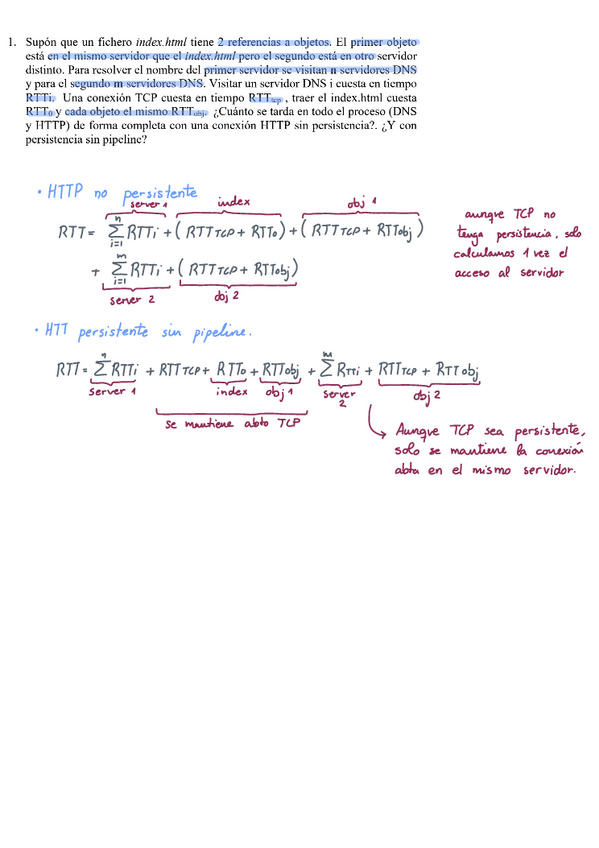 1. Supón que un fichero index.html tiene 2 referencias a objetos. El primer objeto
está en el mismo servidor que el index.html pero el segundo está en otro servidor
distinto. Para resolver el nombre del primer servidor se visitan n servidores DNS
y para el segundo m servidores DNS. Visitar un servidor DNS i cuesta en tiempo
RTTi. Una conexión TCP cuesta en tiempo RTTtcp , traer el index.html cuesta
RTT₀ y cada objeto el mismo RTTobj. ¿Cuánto se tarda en todo el proceso (DNS
y HTTP) de forma completa con una conexión HTTP sin persistencia?. ¿Y con
persistencia sin pipeline?
• HTTP no persistente
server 1 index obj 1
RTT= n Σ i=1 RTTi + ( RTT TCP + RTTo ) + ( RTT TCP + RTTobj )
+ m Σ i=1 RTTi + ( RTT TCP + RTTobj )
server 2 obj 2
aunque TCP no
tenga persistencia, solo
calculamos 1 vez el
acceso al servidor
• HTT persistente sin pipeline.
RTT = n Σ RTTi + RTT TCP + RTTo + RTTobj + m Σ RTTi + RTT TCP + RTT obj
server 1 index obj 1 server 2 obj 2
se mantiene abto TCP
Aunque TCP sea persistente,
solo se mantiene la conexión
abta en el mismo servidor.